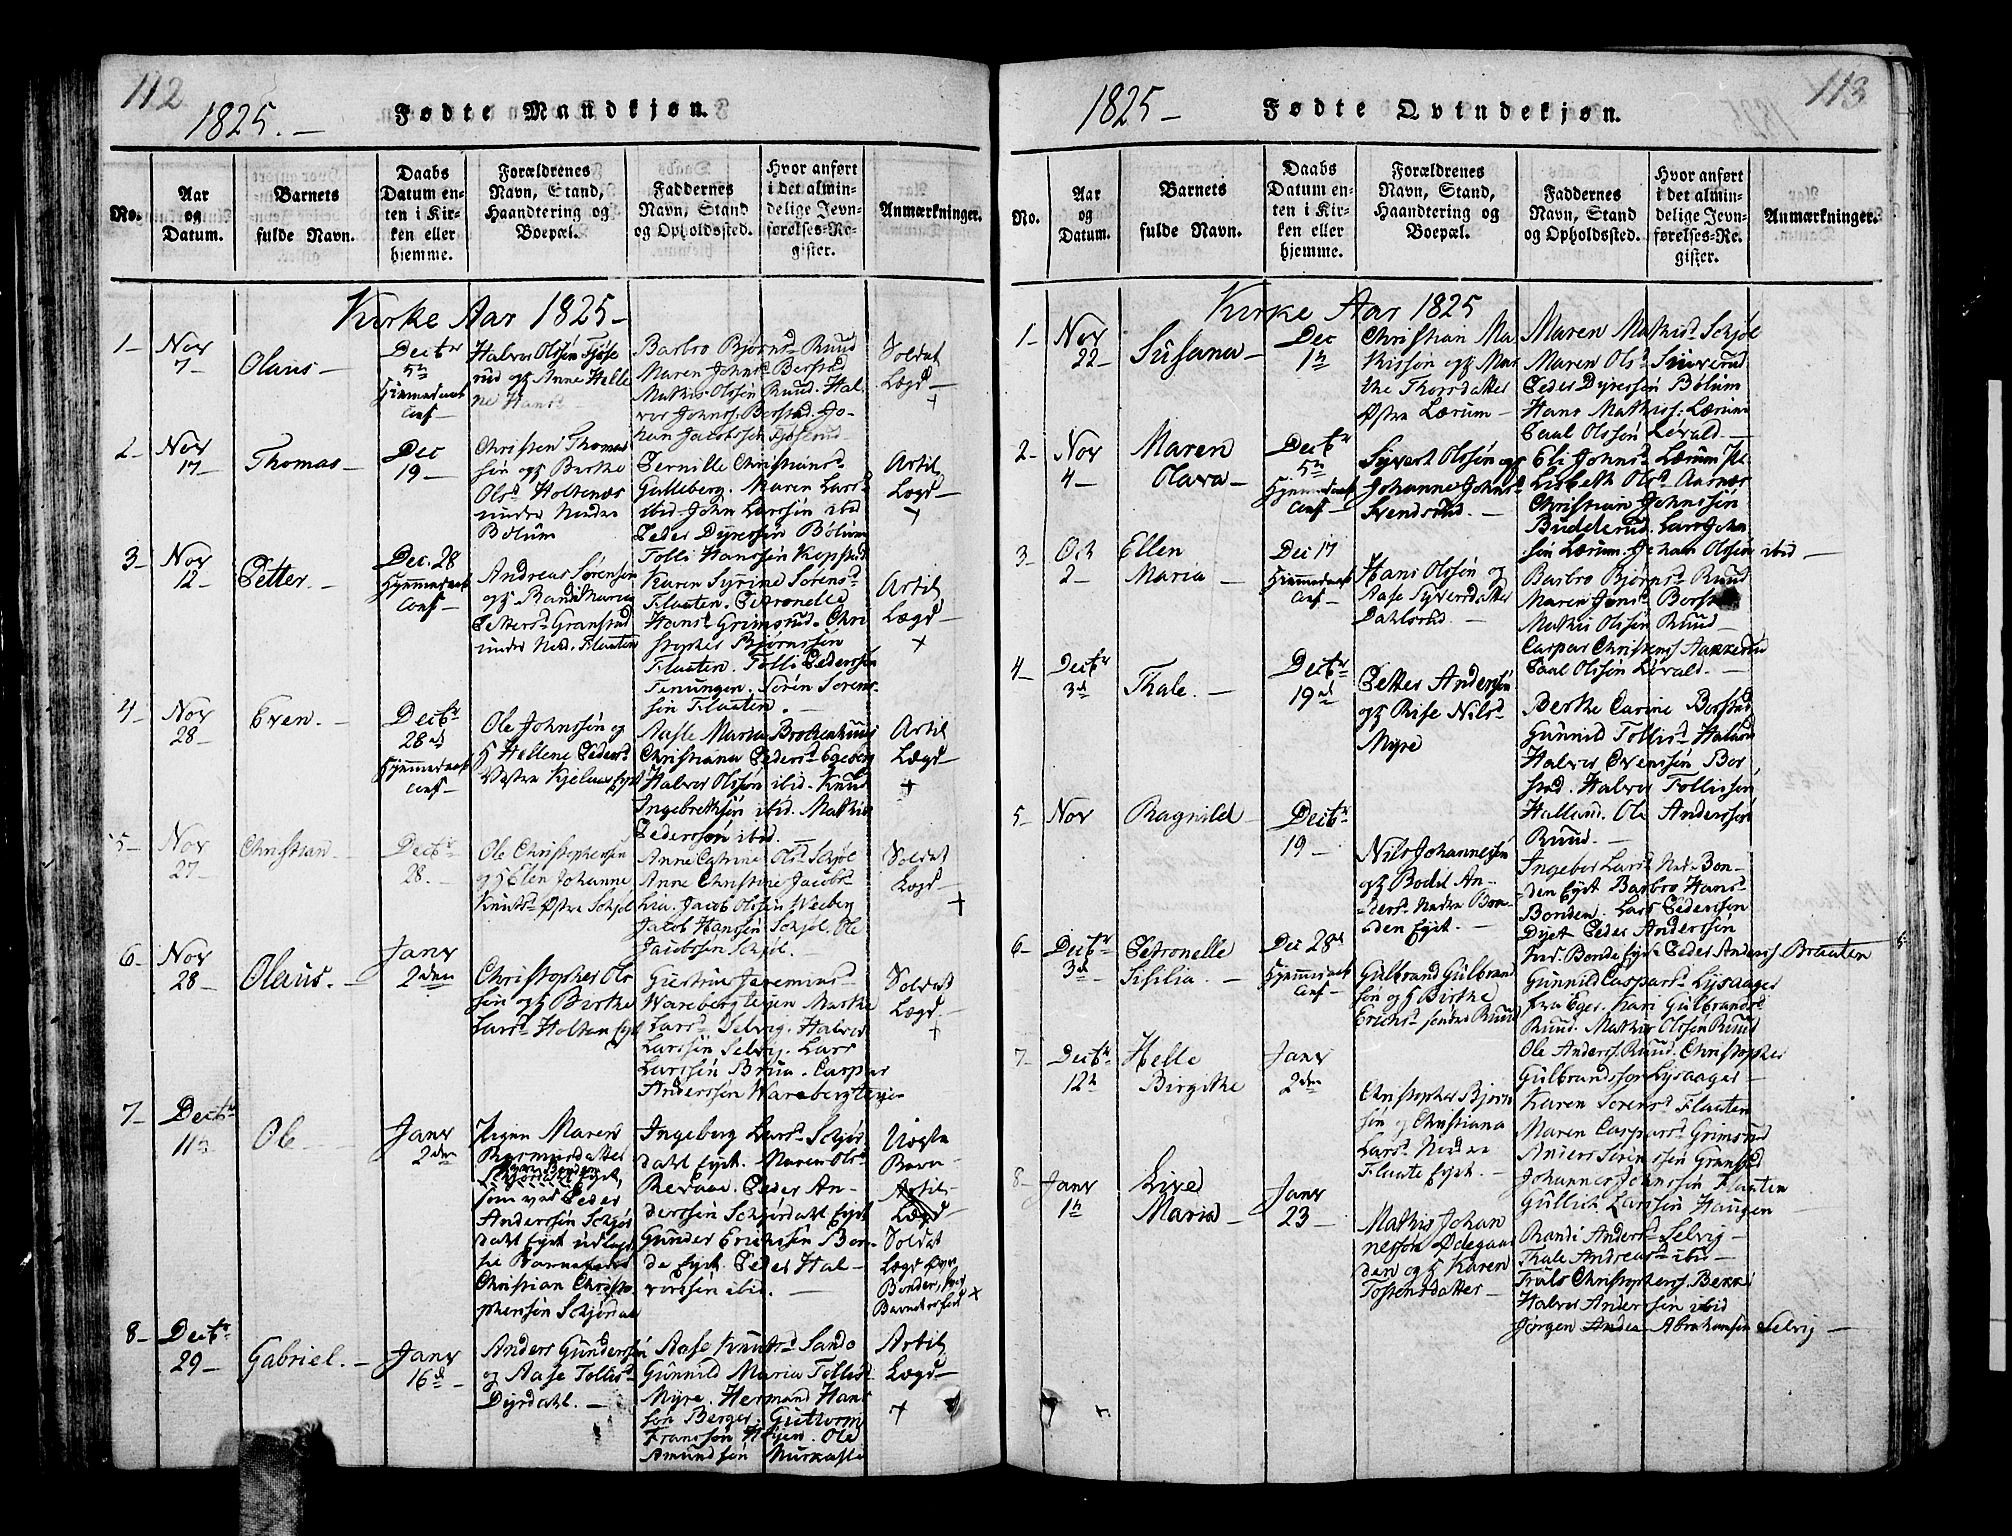 112
1825.–
Fødte Mandkjøn.
No.
Aar og Datum.
Barnets fulde Navn.
Daabs Datum enten i Kirken eller hjemme.
Forældrenes Navn, Stand, Haandtering og Boepæl.
Faddernes Navn, Stand og Opholdssted.
Hvor anført i det almindelige Jevnførelses-Register.
Anmærkninger.
Kirke Aar 1825–
1–
Nov
7–
Olaus–
Decbr
5n
Hjemmedøbt
conf–
Halvor Olssøn Fjøse
rud og Anne Helle
ne Hansd
Barbro Bjørnsd Ruud
Maren Johnsd Berstad
Mathis Olssøn Ruud. Hal
vor Johnss. Berstad. Jo-
han Jacobssøn Fjøserud
Soldat
Lægd–
+
2–
Nov
17–
Thomas–
Dec
19–
Christen Thomas
søn og Berthe
Olsd Holtenæs
under Nedre
Bolum
Pernille Christiansd
Gulleberg. Maren Larsd
ibid. John Larssøn ibid
Peder Dyressøn Bolum
Tolli Hanssøn Kopstad
Artil
Lægd–
+
3–
Nov
12–
Petter.–
Dec. 28
Hjemmedøbt
conf–
Andreas Sørensen
og Randi Maria
Pettersd Granstad
under Ned. Flaaten
Karen Syrine Sørensd
Flaaten. Petronelle
Hansd Grimsrud. Chri
stopher Bjørnssøn
Flaaten. Tolli Pederssøn
Tenungen. Sørén Sorens-
søn Flaaten.–
Artil
Lægd–
+
4–
Nov
28–
Even.–
Decbr
28de
Hjemmedøbt
conf–
Ole Johnssøn og
Hellene Pedersd
Vestre Kjelaas Eyet
Aasle Maria Brochenhuus
Christiana Pedersd Egeberg
Halvor Olsson ibid. Knud
Ingebrethsøn ibid. Mathis
Pederssøn ibid.
Artil
Lægd–
+
5–
Nov
27–
Christian–
Decbr
28.–
Ole Christophersen
og Elen Johanne
Knutsd Østre Schjøl
Anne Catrine Olsd Schjøl
Anne Christine Jacobsd
Lia. Jacob Olssøn Weeberg
Jacob Hanssøn Schjøl. Ole
Jacobssøn Schjøl.–
Soldat
Lægd–
+
6–
Nov
28–
Olaus.–
Janv
2den
Christopher Ols
søn og Birthe
Larsd Holten Eyet
Giertrue Jeremiasd
Warebergteyen Marthe
Larsd Selvig. Halvor
Larssøn Selvig. Lars
Larssøn Bruu. Caspar
Anderssøn Warebergteyen
Soldat
Lægd.–
+
7–
Decbr
11te
Ole–
Janv
2den
Pigen Maren
som ved Peder
Anderssøn Schjør
dahl Eyet udlagde
til Barnefader
Christian Christo
phersøn Schjørdal
Ingeberg Larsd Schjør
dahl Eyet. Maren Olsd
Revaae. Peder An-
derssøn Schjørdahl Eyet
Gunder Erichsøn Bon-
de Eyet. Peder Hal-
vorssøn ibid.–
Uægte
Barn–
Artil–
Lægd–
Soldat
8–
Decbr
29–
Gabriel.–
Janv
16de–
Anders Gunderssøn
og Aase Tollisd
Dyrdahl.–
Aase Knutsd Sando
Gunnild Maria Tollisd
Myre. Hermand Hans
søn Berger. Guttorm
Franssøn Høyen. Ole
Amundsøn Murkaste
Artil
Lægd–
+
113
1825–
Fødte Qvindekjøn.
No.
Aar og Datum.
Barnets fulde Navn.
Daabs Datum enten i Kirken eller hjemme.
Forældrenes Navn, Stand, Haandtering og Boepæl.
Faddernes Navn, Stand og Opholdssted.
Hvor anført i det almindelige Jevnførelses-Register.
Anmærkninger.
Kirke Aar 1825
1–
Nov
22–
Susana–
Dec
1n
Christian Ma
thissøn og Mar
the Thorsdatter
Østre Lærum–
Maren Mathisd Schjøl
Maren Olsd Snuverud
Peder Dyressøn Bolum
Hans Mathiss. Lærum
Paal Olssøn Løvald–
2–
Nov
4–
Maren
Olava–
Decbr
5n
Hjemmedøbt
conf–
Syvert Olssøn og
Johanne Johnsd
Svendsrud.–
Eli Johnsd Lærum
Lisbeth Olsd Aasnæs
Christian Johnssøn
Budderud. Lars John
søn Lærum. Johan Olssøn ibid–
3–
Oct
2–
Ellen
Maria–
Dec 17
Hjemmedøbt
conf–
Hans Olssøn og
Aase Syversdatter
Dahlsrud.–
Barbro Bjørnsd Ruud
Maren Jonsd Borstad
Mathis Olssøn Ruud–
Caspar Christens. Aakkerud
Paal Olssøn Løvald.–
4–
Decbr
3d
Thale.–
Decbr
19de–
Petter Anderssøn
og Rise Nilsd
Myre
Berthe Carine Borstad
Gunnild Tollisd Halland
Halvor Evenssøn Bor
stad. Halvor Tollissøn
Halland. Ole Anderssøn
Ruud.–
5–
Nov
Ragnild–
Decbr
19–
Nils Johannessøn
og Bodil An–
dersd Nedre Bon–
den Eyet.–
Ingebor Larsd Nedr. Bon–
den Eyet Barbro Hansd
Bonden. Lars Pederssøn
Dyet Peder Anderssøn
Ned. Bonde Eyet Peder Anders. Braaten
6–
Decbr
3d
Petronelle
Sisilia.–
Dec 28de
Hjemmedøbt
conf–
Gulbrand Gulbrand
søn og Birthe
Erichsd søndre Ruud
Gunnild Caspersd Lysaager
fra Eger. Kari Gulbrandsd
Ruud. Mathis Olssøn Ruud
Ole Anderss. Ruud. Christopher
Gulbrandssøn Lysaager–
7–
Decbr
12te
Helle
Birgithe
Janv
2den
Christopher Bjørn
søn og Christiana
Larsd Nedre
Flaate Eyet.–
Karen Sorensd Flaaten
Maren Caspersd Grimsrud
Anders Sørenssøn Granstad
Johannes Johnssøn Flaaten
Gullich Larssøn Haugen–
8–
Janv
1n
Live
Maria–
Janv
23–
Mathis Johan
nessøn Ødegaar
den og Karen
Tostensdatter–
Randi Andersd Selvig–
Thale Andreasd ibid–
Truls Christophers. Bekke
Halvor Anderssøn ibid
Jørgen Abrahamsøn Selvig–